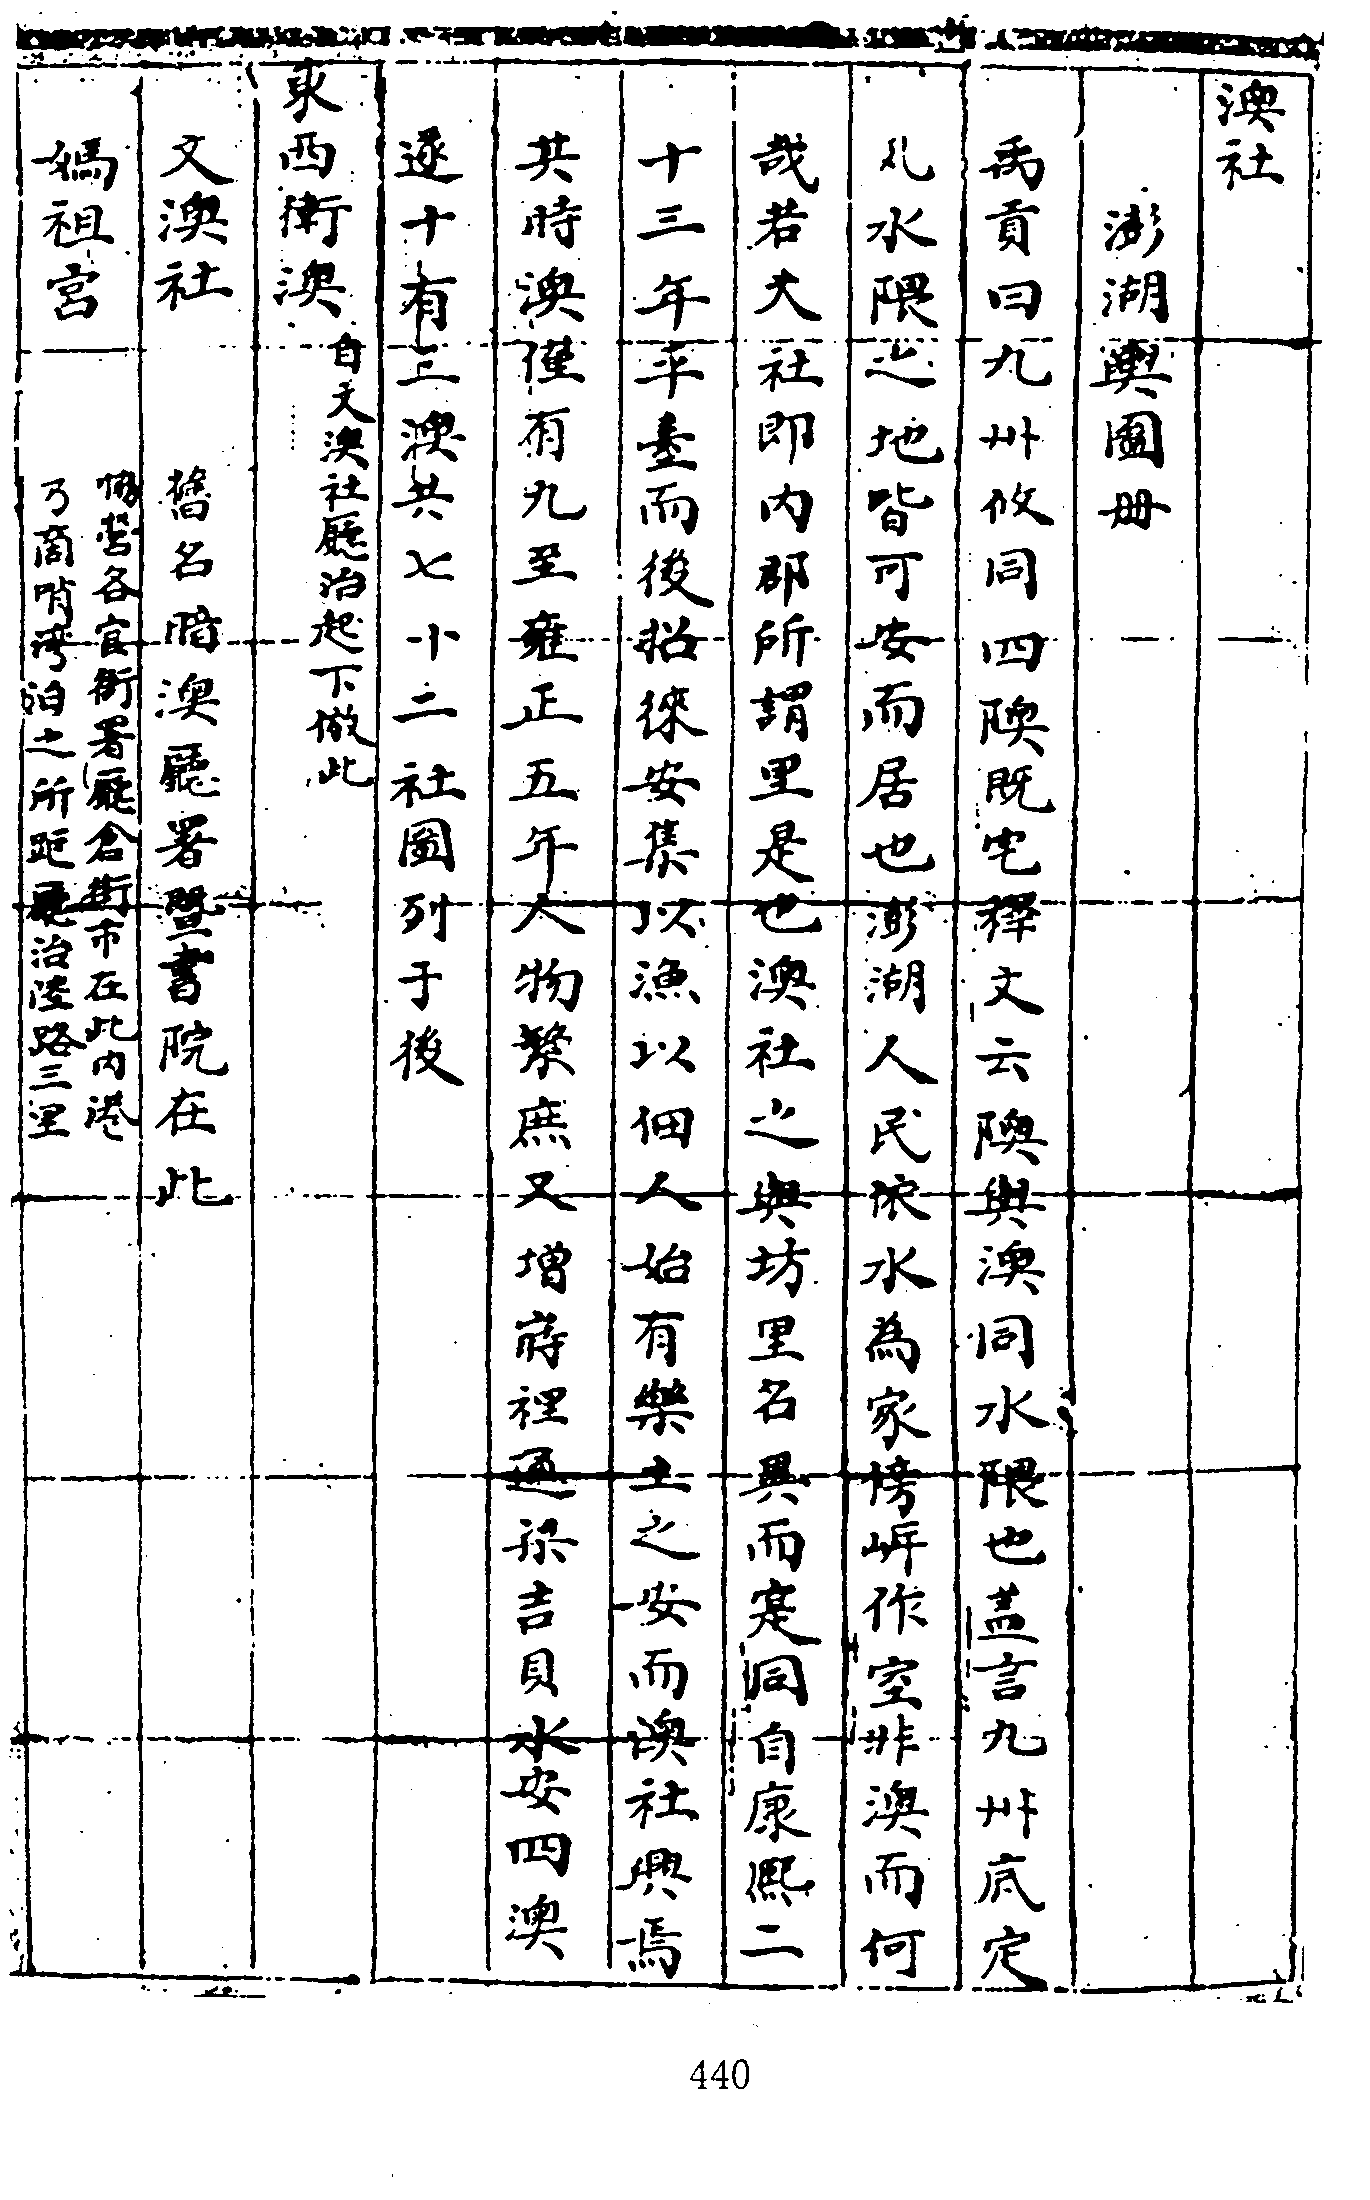 澳社
澎湖輿圖册
禹貢曰九州攸同四隩既宅釋文云隩與澳同水隈也盖言九州底定
凡水隈之地皆可安而居也澎湖人民依水為家傍岸作室非澳而何
哉若夫社即内郡所謂里是也澳社之與坊里名異而寔同自康熙二
十三年平臺而後招徠安集以漁以佃人始有樂土之安而澳社興焉
其時澳僅有九至雍正五年人物繁庶又增嵵裡通梁吉貝水安四澳
遂十有三澳共七十二社圖列于後
東西衛澳 自文澳社廳治起下倣此
文澳社 舊名暗澳廳署暨書院在此
媽祖宮 協營各官衙署廳倉街市在此内港
乃商哨湾泊之所距廳治陸路三里
440